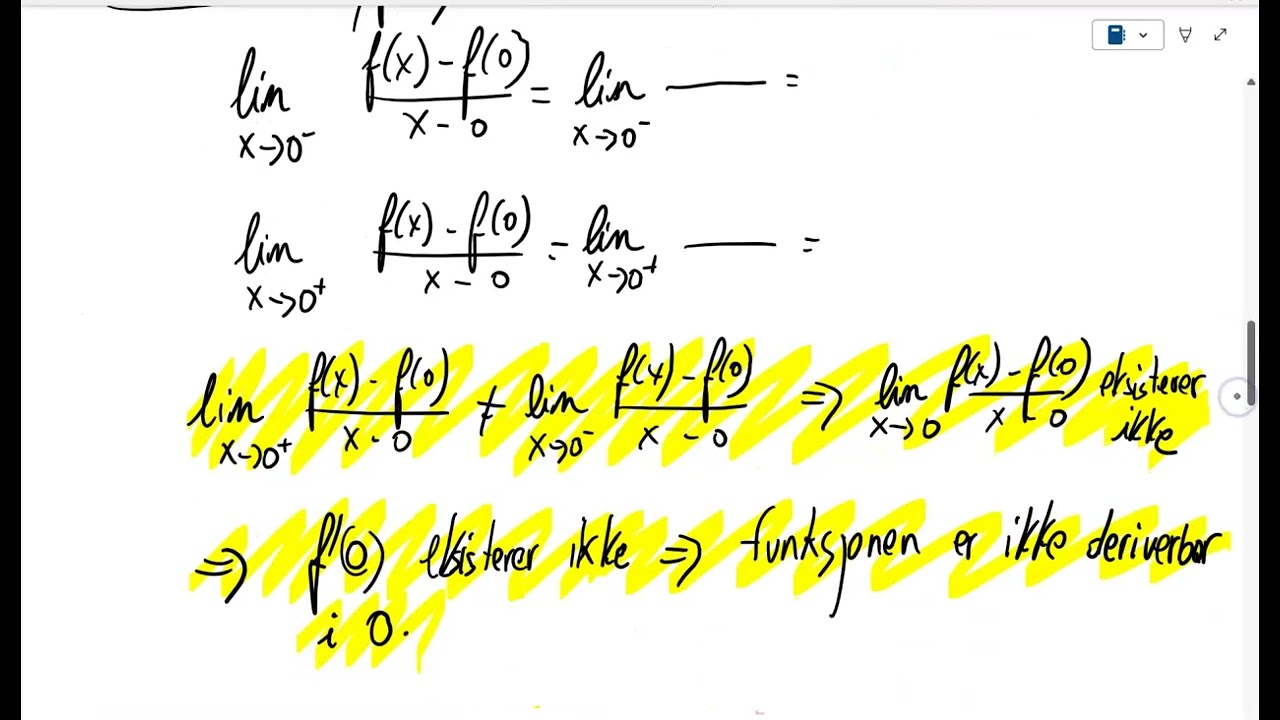 lim x→0⁻ (f(x) - f(0))/(x - 0) = lim x→0⁻ ——— =
lim x→0⁺ (f(x) - f(0))/(x - 0) = lim x→0⁺ ——— =
lim x→0⁺ (f(x) - f(0))/(x - 0) ≠ lim x→0⁻ (f(x) - f(0))/(x - 0) ⇒ lim x→0 (f(x) - f(0))/(x - 0) eksisterer ikke
⇒ f'(0) eksisterer ikke ⇒ funksjonen er ikke deriverbar
i 0.